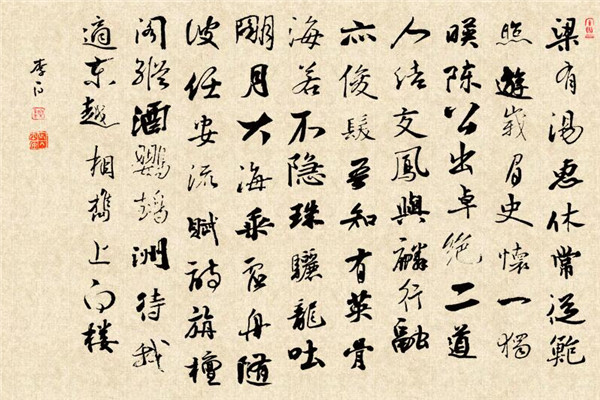 梁有湯惠休常從鮑
照遊峨眉史懷一獨
映陳公出卓絶二道
人結交鳳與麟行融
亦俊髮吾知有英骨
海若不隐珠驪龍吐
明月大海乘虚舟随
波任安流賦詩旃檀
阁縱酒鸚鵡洲待我
適東越相攜上白樓
李白